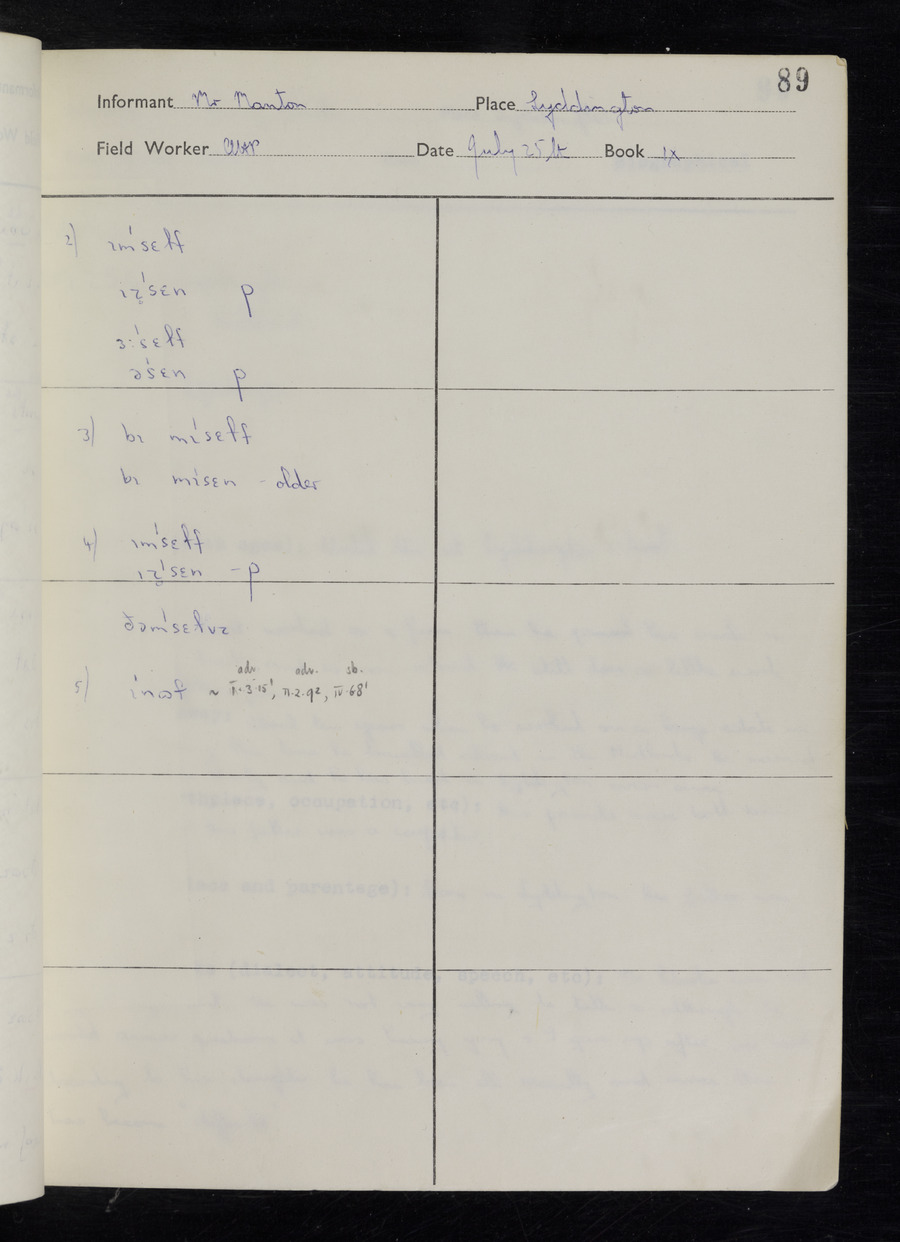 89
Informant Mr Manton Place Lyddington
Field Worker Date July 25th Book IX
2) ɪmˈsɛlf
ɪz̥ˈsɛn p
ɜːˈsɛlf
əˈsɛn p
3) bɪ mɪˈsɛlf
bɪ mɪˈsɛn - older
4) ɪmˈsɛlf
ɪz̥ˈsɛn - p
ðəmˈsɛlvz
adv. adv. sb.
5) ɪˈnʊf ~ II.3.15¹, VI.2.9², IV.6.8¹